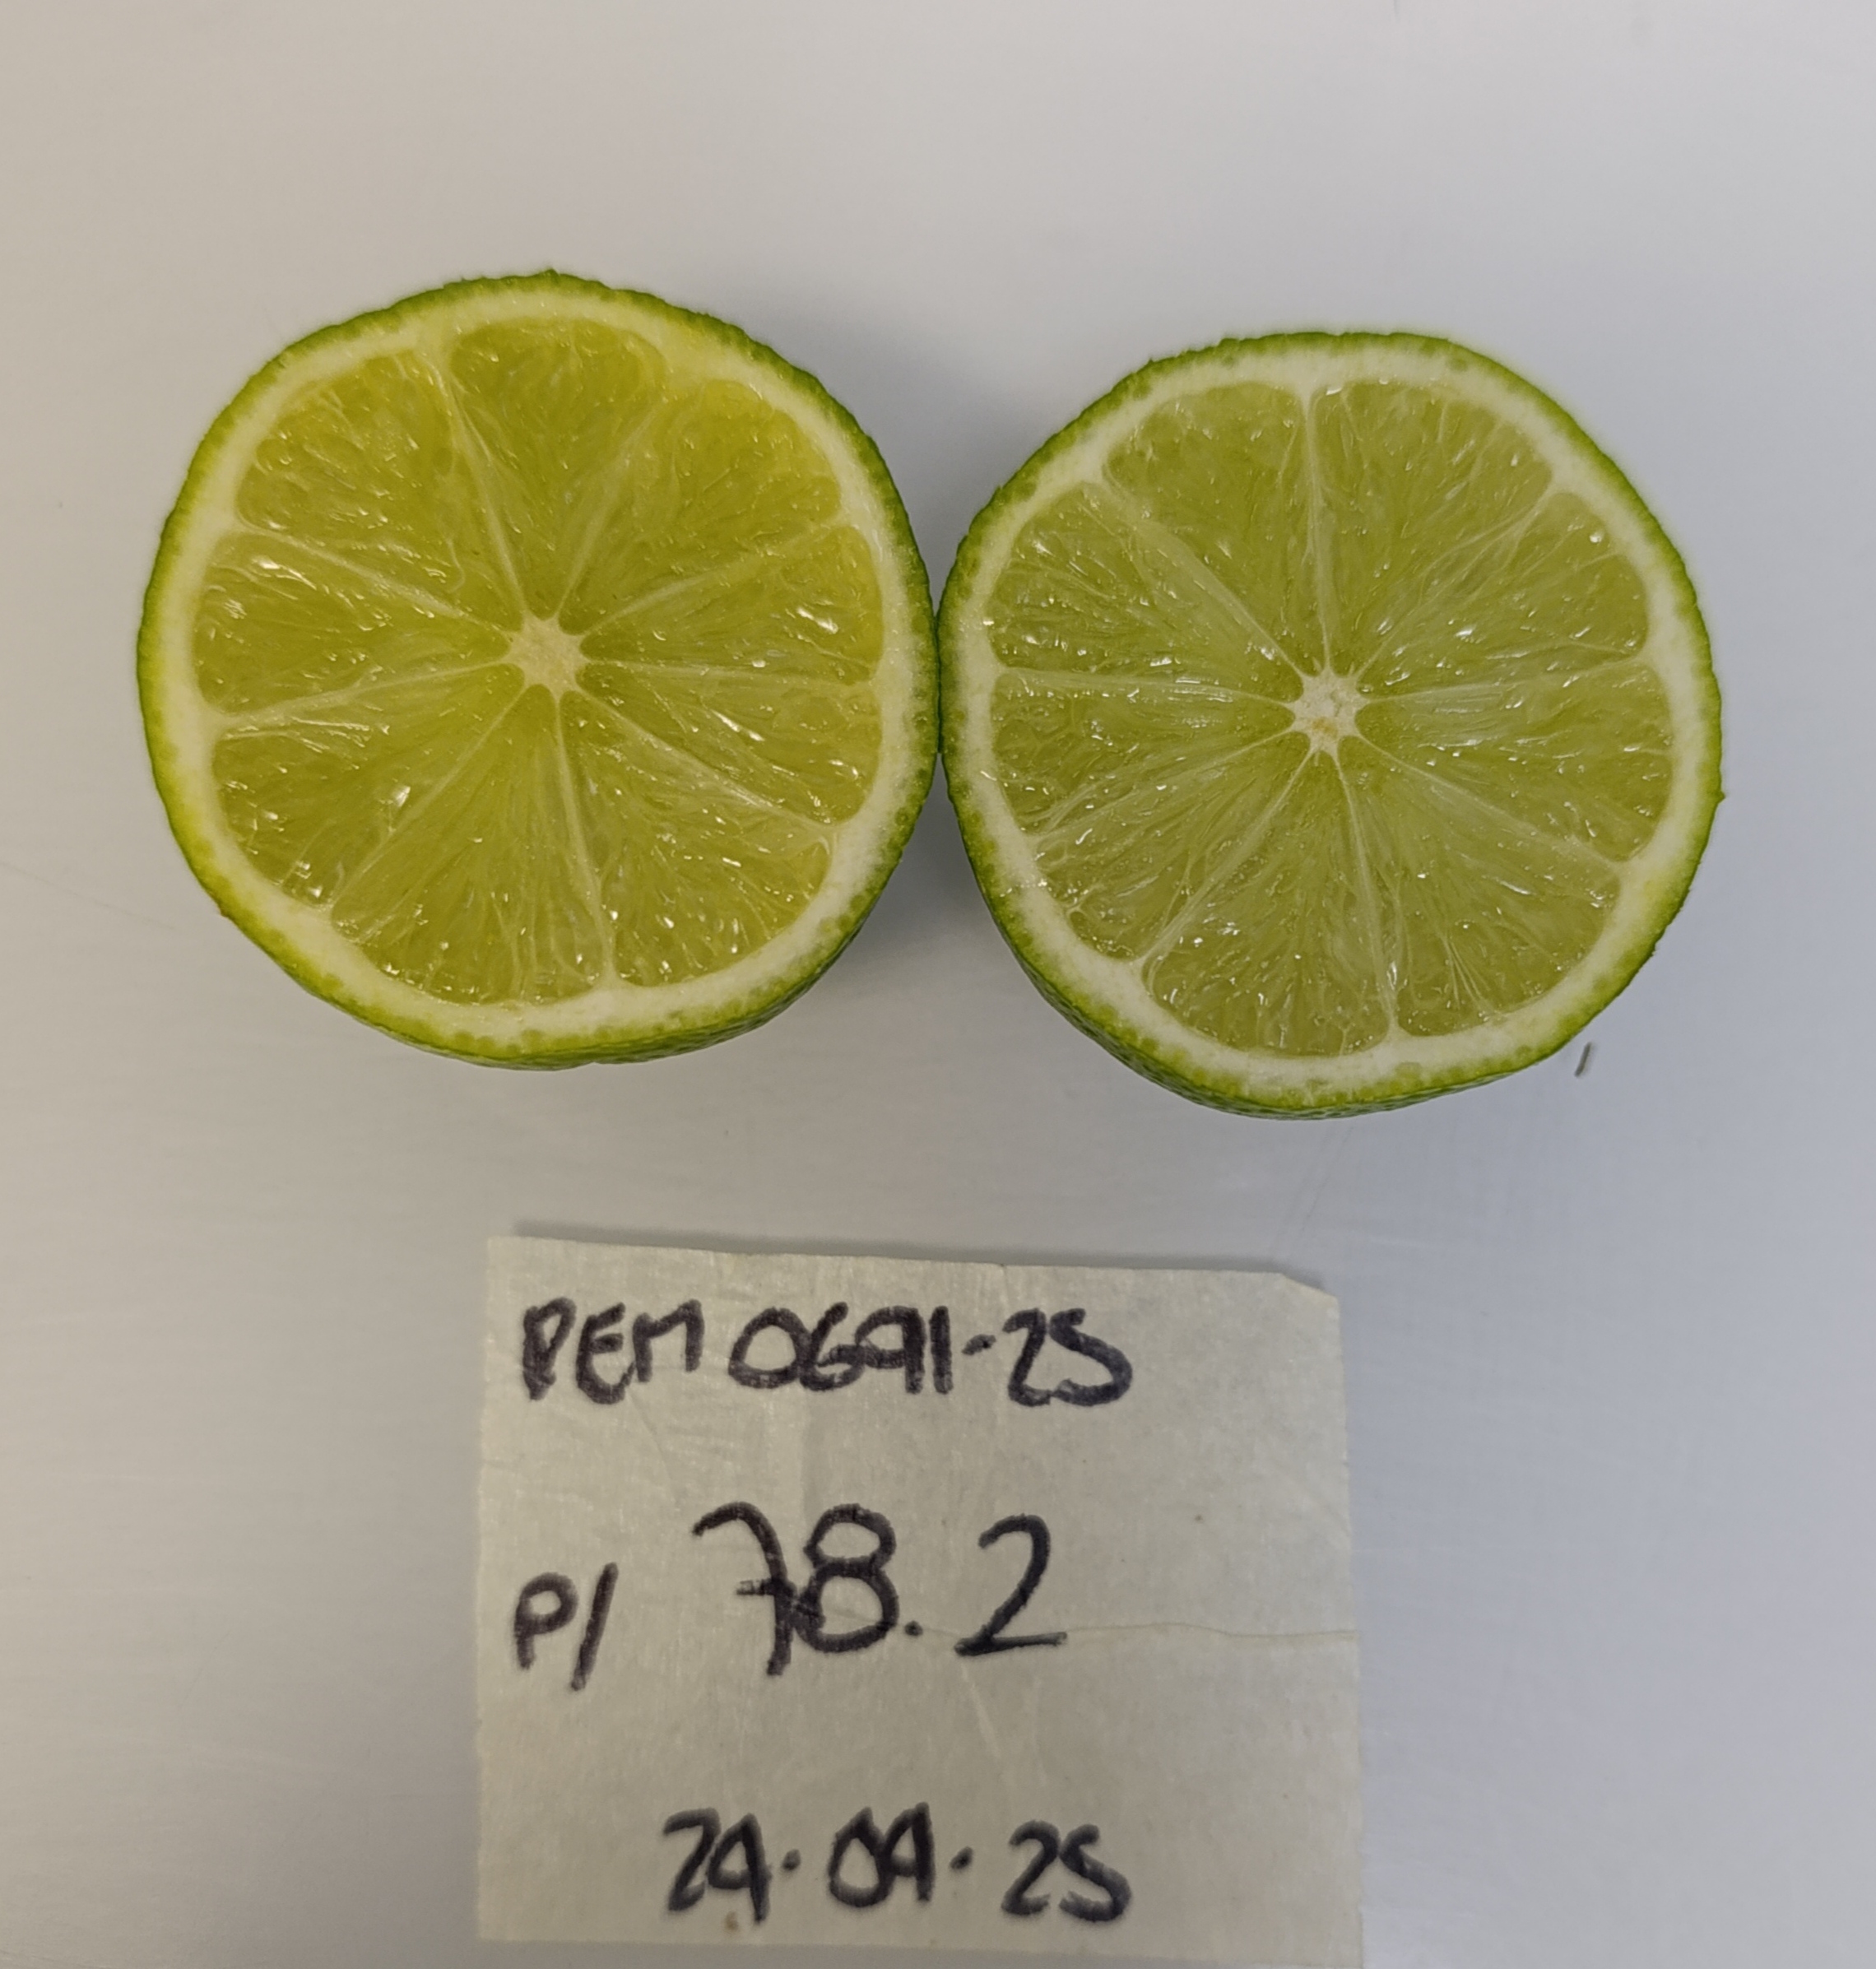 PEM 0691-25
P/ 78.2
24.04.25